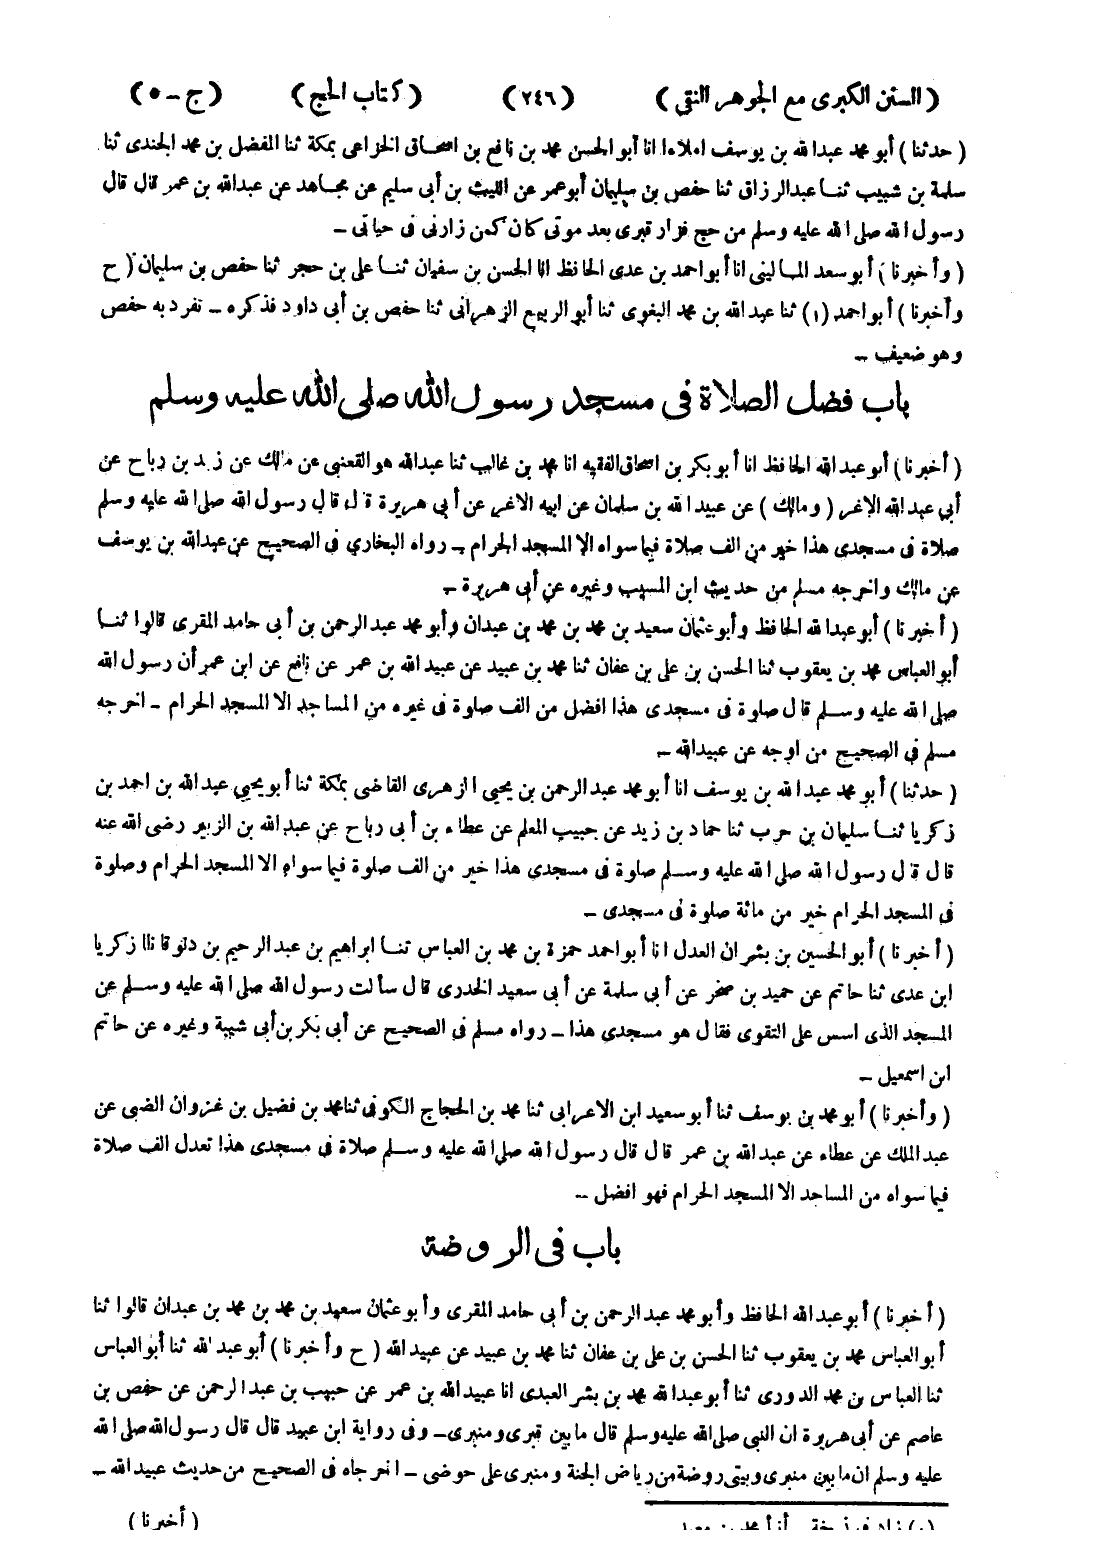 (السنن الكبرى مع الجوهر النقي) (٢٤٦) (كتاب الحج) (ج - ٥)
(حدثنا) أبو محمد عبدالله بن يوسف املاءا انا أبو الحسن محمد بن نافع بن اسحاق الخزاعى بمكة ثنا المفضل بن محمد الجندى ثنا
سلمة بن شبيب ثنا عبدالرزاق ثنا حفص بن سليمان أبوعمر عن الليث بن أبى سليم عن مجاهد عن عبدالله بن عمر قال قال
رسول الله صلى الله عليه وسلم من حج فزار قبرى بعد موتى كان كمن زارنى فى حياتى -
(وأخبرنا) أبو سعد المالينى انا أبو احمد بن عدى الحافظ انا الحسن بن سفيان ثنا على بن حجر ثنا حفص بن سليمان (ح
وأخبرنا) أبو احمد (١) ثنا عبدالله بن محمد البغوى ثنا أبو الربيع الزهرانى ثنا حفص بن أبى داود فذكره - تفرد به حفص
وهو ضعيف -
باب فضل الصلاة فى مسجد رسول الله صلى الله عليه وسلم
(أخبرنا) أبو عبد الله الحافظ انا أبو بكر بن اسحاق الفقيه انا محمد بن غالب ثنا عبدالله هو القعنبى عن مالك عن زيد بن رباح عن
أبي عبد الله الاغر (ومالك) عن عبيد الله بن سلمان عن ابيه الاغر عن أبى هريرة قال قال رسول الله صلى الله عليه وسلم
صلاة فى مسجدى هذا خير من الف صلاة فيما سواه الا المسجد الحرام - رواه البخاري فى الصحيح عن عبدالله بن يوسف
عن مالك واخرجه مسلم من حديث ابن المسيب وغيره عن أبى هريرة -
(أخبرنا) أبو عبدالله الحافظ وأبو عثمان سعيد بن محمد بن محمد بن عبدان وأبو محمد عبد الرحمن بن أبى حامد المقرى قالوا ثنا
أبو العباس محمد بن يعقوب ثنا الحسن بن على بن عفان ثنا محمد بن عبيد عن عبيد الله بن عمر عن نافع عن ابن عمر أن رسول الله
صلى الله عليه وسلم قال صلوة فى مسجدى هذا افضل من الف صلوة فى غيره من المساجد الا المسجد الحرام - اخرجه
مسلم فى الصحيح من اوجه عن عبيدالله -
(حدثنا) أبو محمد عبدالله بن يوسف انا أبو محمد عبد الرحمن بن يحيى الزهرى القاضى بمكة ثنا أبو يحيى عبدالله بن احمد بن
زكريا ثنا سليمان بن حرب ثنا حماد بن زيد عن حبيب المعلم عن عطاء بن أبى رباح عن عبدالله بن الزبير رضى الله عنه
قال قال رسول الله صلى الله عليه وسلم صلوة فى مسجدى هذا خير من الف صلوة فيما سواه الا المسجد الحرام وصلوة
فى المسجد الحرام خير من مائة صلوة فى مسجدى -
(أخبرنا) أبو الحسين بن بشران العدل انا أبو احمد حمزة بن محمد بن العباس ثنا ابراهيم بن عبد الرحيم بن دنوقا ثنا زكريا
ابن عدى ثنا حاتم عن حميد بن صخر عن أبى سلمة عن أبى سعيد الخدرى قال سألت رسول الله صلى الله عليه وسلم عن
المسجد الذى اسس على التقوى فقال هو مسجدى هذا - رواه مسلم فى الصحيح عن أبى بكر بن أبى شيبة وغيره عن حاتم
ابن اسمعيل -
(وأخبرنا) أبو محمد بن يوسف ثنا أبو سعيد ابن الاعرابى ثنا محمد بن الحجاج الكوفى ثنا محمد بن فضيل بن غزوان الضبى عن
عبد الملك عن عطاء عن عبدالله بن عمر قال قال رسول الله صلى الله عليه وسلم صلاة فى مسجدى هذا تعدل الف صلاة
فيما سواه من المساجد الا المسجد الحرام فهو افضل -
باب فى الروضة
(أخبرنا) أبو عبدالله الحافظ وأبو محمد عبد الرحمن بن أبى حامد المقرى وأبو عثمان سعيد بن محمد بن محمد بن عبدان قالوا ثنا
أبو العباس محمد بن يعقوب ثنا الحسن بن على بن عفان ثنا محمد بن عبيد عن عبيد الله (ح وأخبرنا) أبو عبدالله ثنا أبو العباس
ثنا العباس بن محمد الدورى ثنا أبو عبدالله محمد بن بشر العبدى انا عبيد الله بن عمر عن حبيب بن عبد الرحمن عن حفص بن
عاصم عن أبى هريرة ان النبى صلى الله عليه وسلم قال ما بين قبرى ومنبرى - وفى رواية ابن عبيد قال قال رسول الله صلى الله
عليه وسلم ان ما بين منبرى وبيتى روضة من رياض الجنة ومنبرى على حوضى - اخرجاه فى الصحيح من حديث عبيد الله -
(أخبرنا)